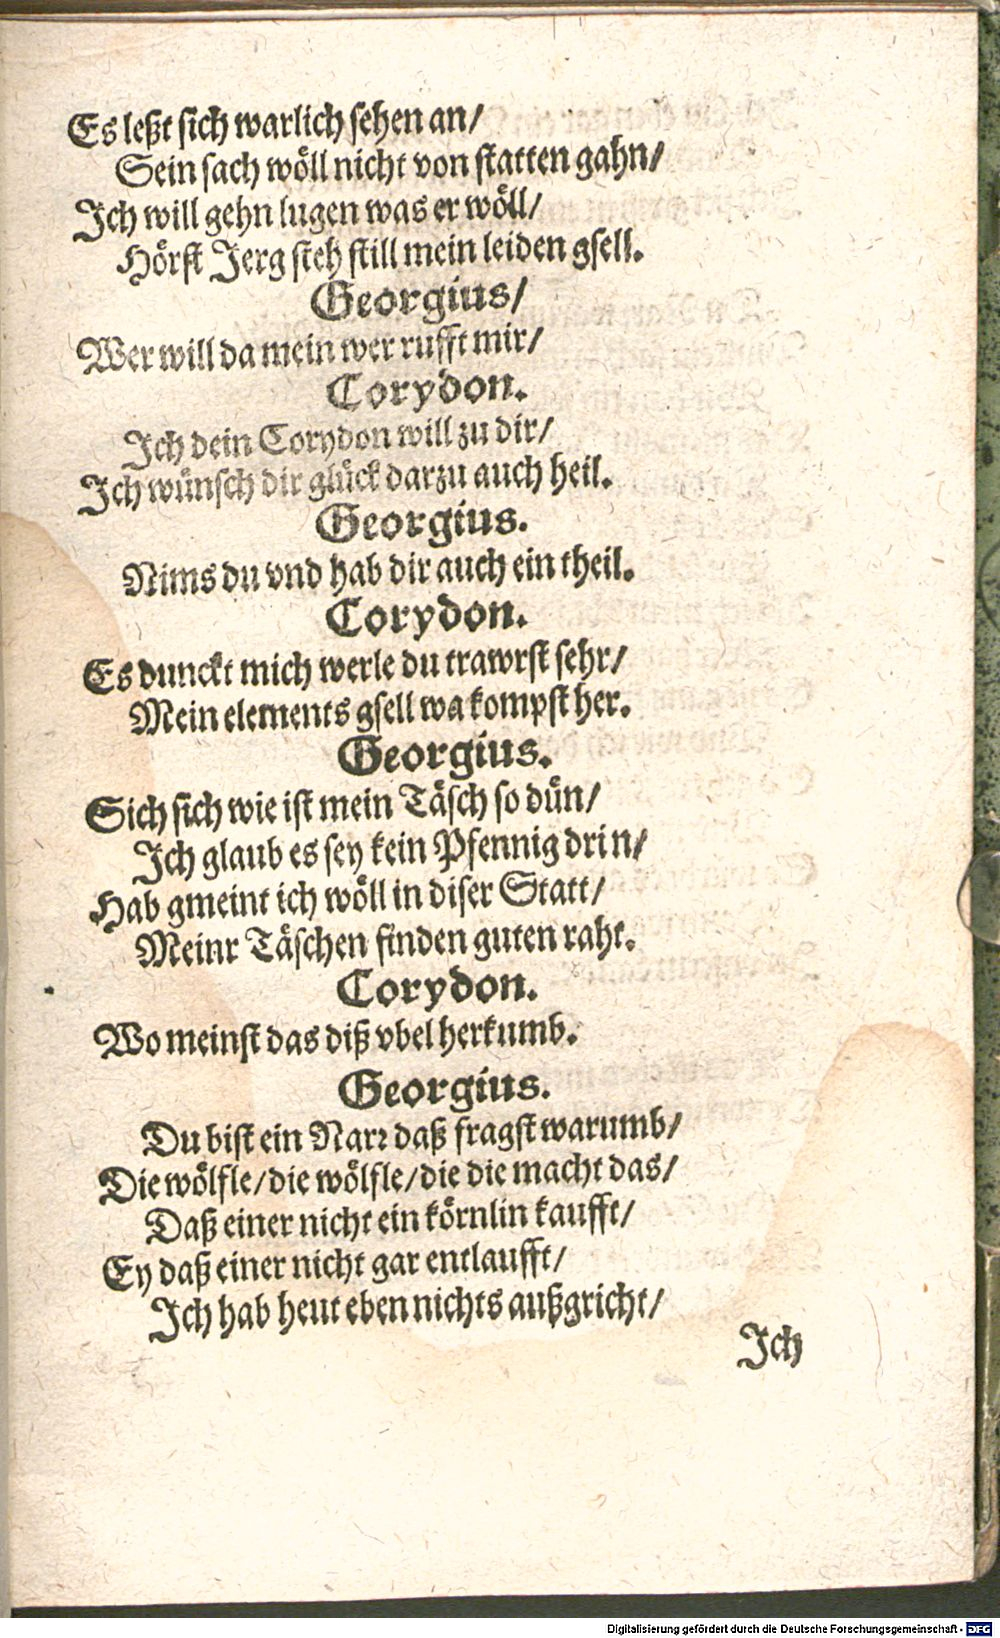 Es leßt sich warlich sehen an/
Sein sach wöll nicht von statten gahn/
Ich will gehn lugen was er wöll/
Hörst Jerg steh still mein leiden gsell.
Georgius/
Wer will da mein wer rufft mir/
Corydon.
Ich dein Corydon will zu dir/
Ich wünsch dir glück darzu auch heil.
Georgius.
Nims du vnd hab dir auch ein theil.
Corydon.
Es dunckt mich werle du trawrst sehr/
Mein elements gsell wa kompst her.
Georgius.
Sich sich wie ist mein Täsch so dün/
Ich glaub es sey kein Pfennig drin/
Hab gmeint ich wöll in diser Statt/
Meinr Täschen finden guten raht.
Corydon.
Wo meinst das diß vbel herkumb.
Georgius.
Du bist ein Narr daß fragst warumb/
Die wölfle/die wölfle/die die macht das/
Daß einer nicht ein körnlin kaufft/
Ey daß einer nicht gar entlaufft/
Ich hab heut eben nichts außgricht/
Ich
Digitalisierung gefördert durch die Deutsche Forschungsgemeinschaft - DFG